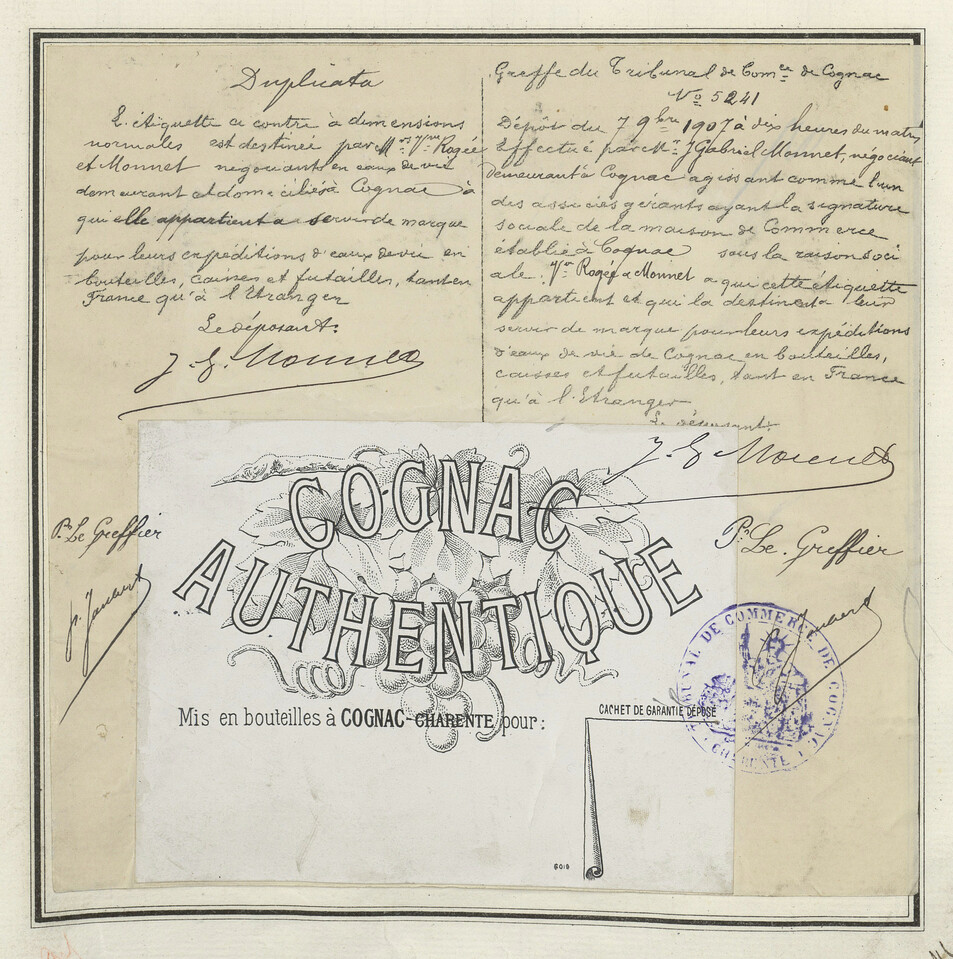 Duplicata
L'étiquette ci contre à dimensions
normales est destinée par Mrs Vve Rogée
et Monnet négociants en eaux de vie
demeurant et domiciliés à Cognac à
qui elle appartient a servir de marque
pour leurs expéditions d'eaux de vie en
bouteilles, caisses et futailles, tant en
France qu'à l'Etranger
Le déposant:
J. G. Monnet
Greffe du Tribunal de Comce de Cognac
No 5241
Dépôt du 7 9bre 1907 à dix heures du matin
Effectué par Mr J Gabriel Monnet, négociant
demeurant à Cognac agissant comme l'un
des associés gérants ayant la signature
sociale de la maison de Commerce
établie à Cognac sous la raison soci
ale Vve Rogée & Monnet a qui cette étiquette
appartient et qui la destinent a leur
servir de marque pour leurs expéditions
d'eaux de vie de Cognac en bouteilles,
caisses et futailles, tant en France
qu'à l'Etranger
Le déposant:
J. G Monnet
Pr Le Greffier
Pr Le Greffier
COGNAC
AUTHENTIQUE
Mis en bouteilles à COGNAC-CHARENTE pour:
CACHET DE GARANTIE DÉPOSÉ
6019
TRIBUNAL DE COMMERCE DE COGNAC
CHARENTE